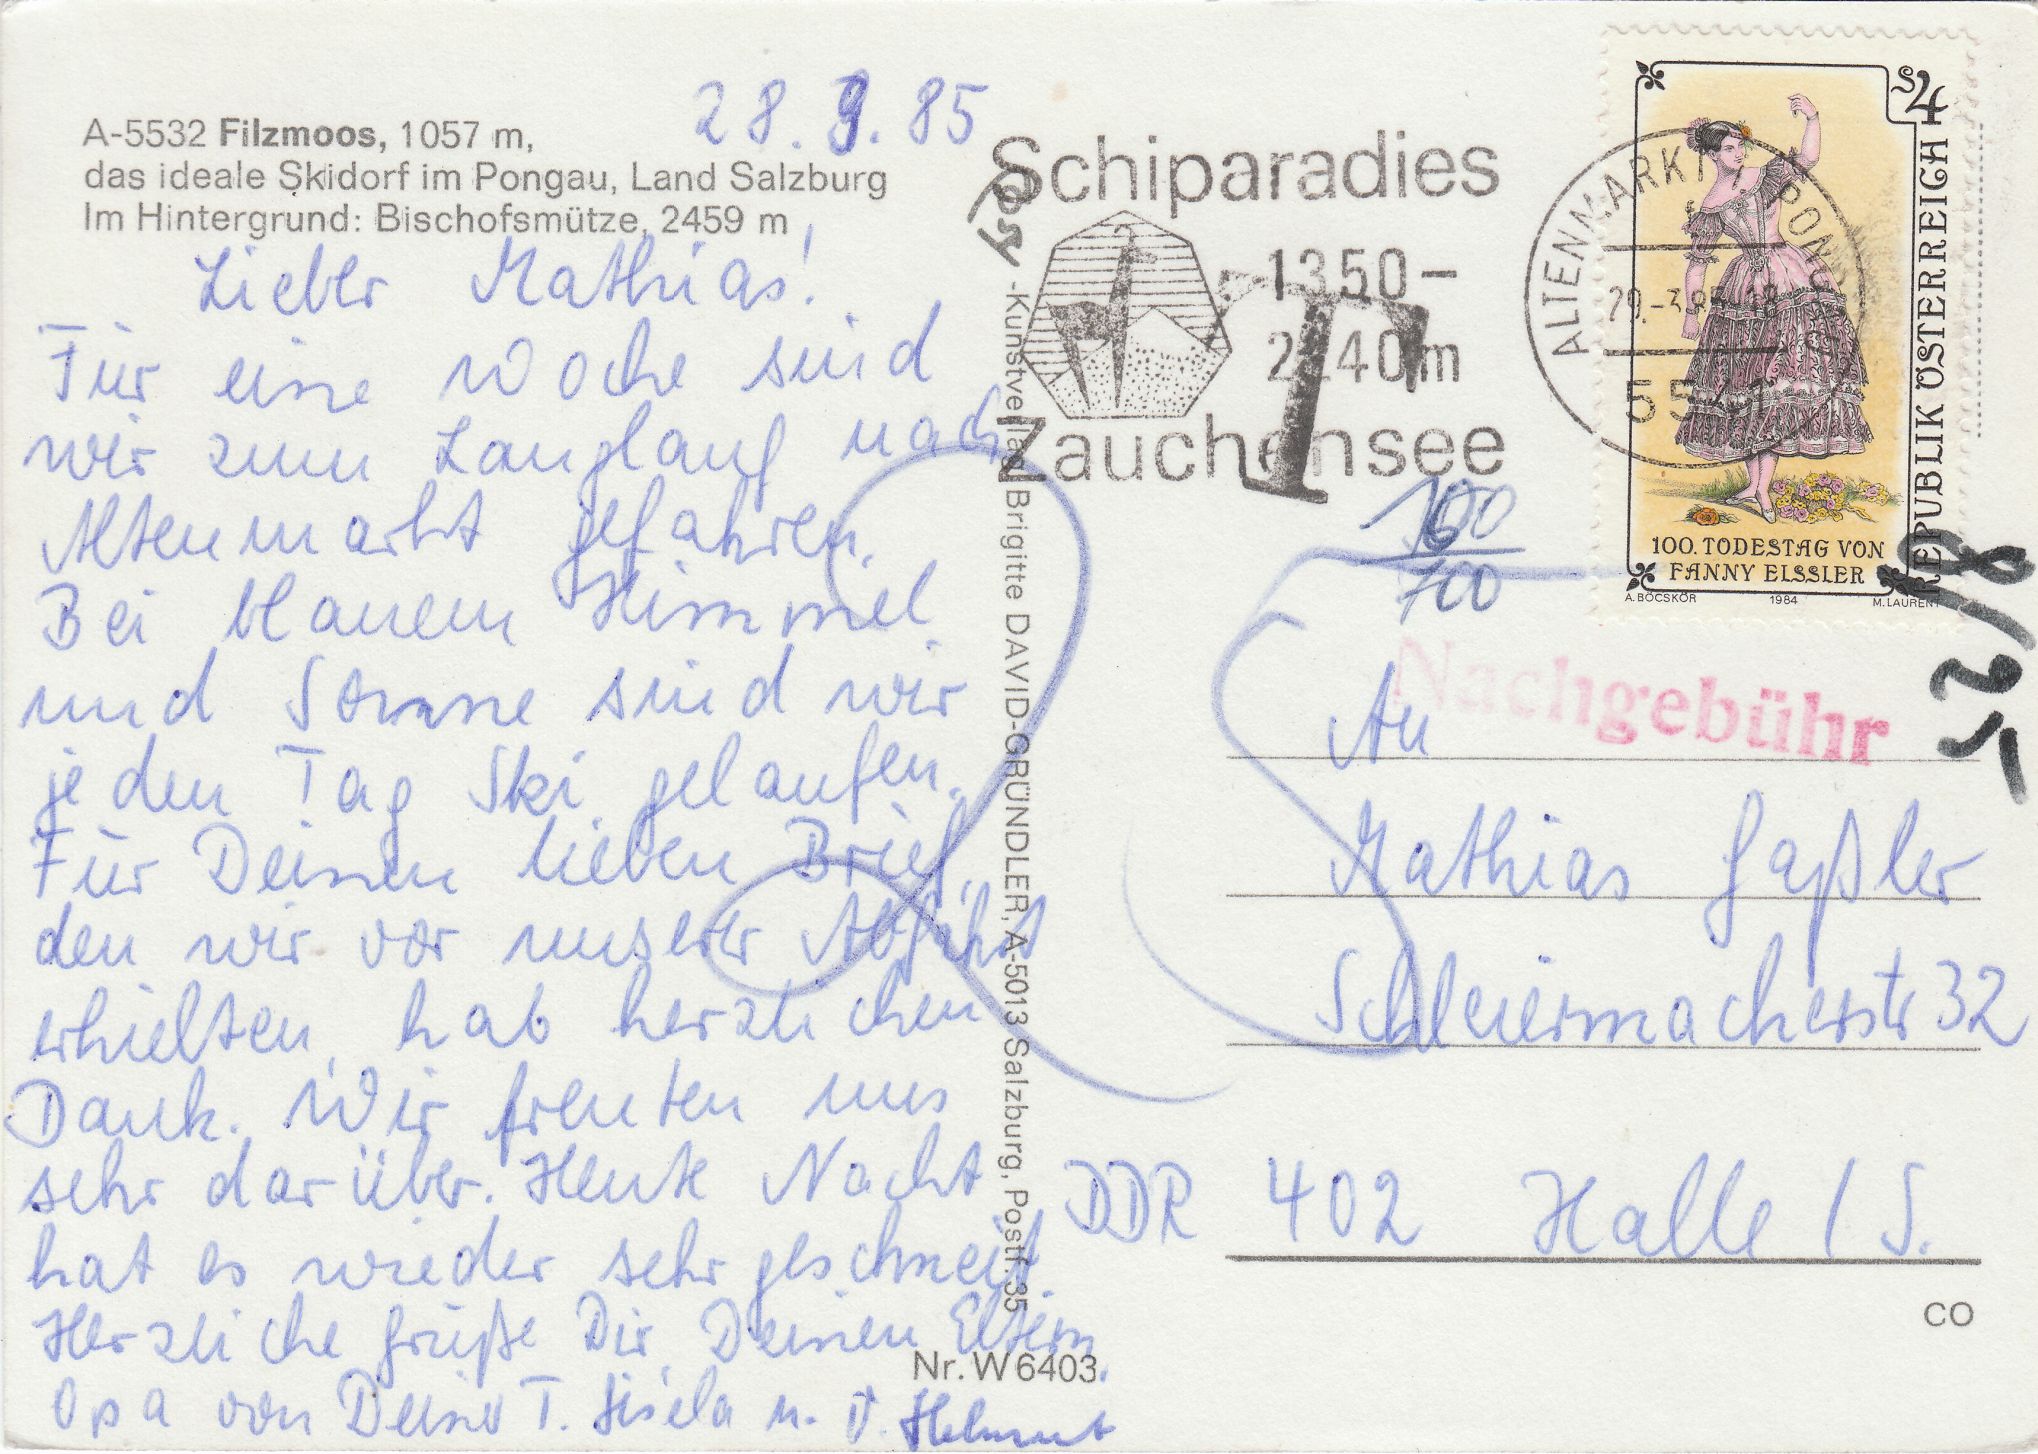 28.3.85
A-5532 Filzmoos, 1057 m,
das ideale Skidorf im Pongau, Land Salzburg
Im Hintergrund: Bischofsmütze, 2459 m
Lieber Mathias!
Für eine Woche sind
wir zum Langlauf nach
Altenmarkt gefahren.
Bei blauem Himmel
und Sonne sind wir
jeden Tag Ski gelaufen.
Für Deinen lieben Brief,
den wir vor unserer Abfahrt
erhielten, hab herzlichen
Dank. Wir freuten uns
sehr darüber. Heute Nacht
hat es wieder sehr geschneit
Herzliche Grüße Dir, Deinen Eltern,
Opa von Deiner T. Gisela u. O. Helmut
-Kunstverlag Brigitte DAVID-GRÜNDLER, A-5013 Salzburg, Postf. 35
Nr. W 6403
Schiparadies
1350 –
m
Zauchensee
T
ALTENMARKT PONGAU
5541
S4
REPUBLIK ÖSTERREICH
100. TODESTAG VON
FANNY ELSSLER
A. BÖCSKÖR 1984 M. LAURENT
700
Nachgebühr
An
Mathias Gaßler
Schleiermacherstr 32
DDR 402 Halle / S.
CO